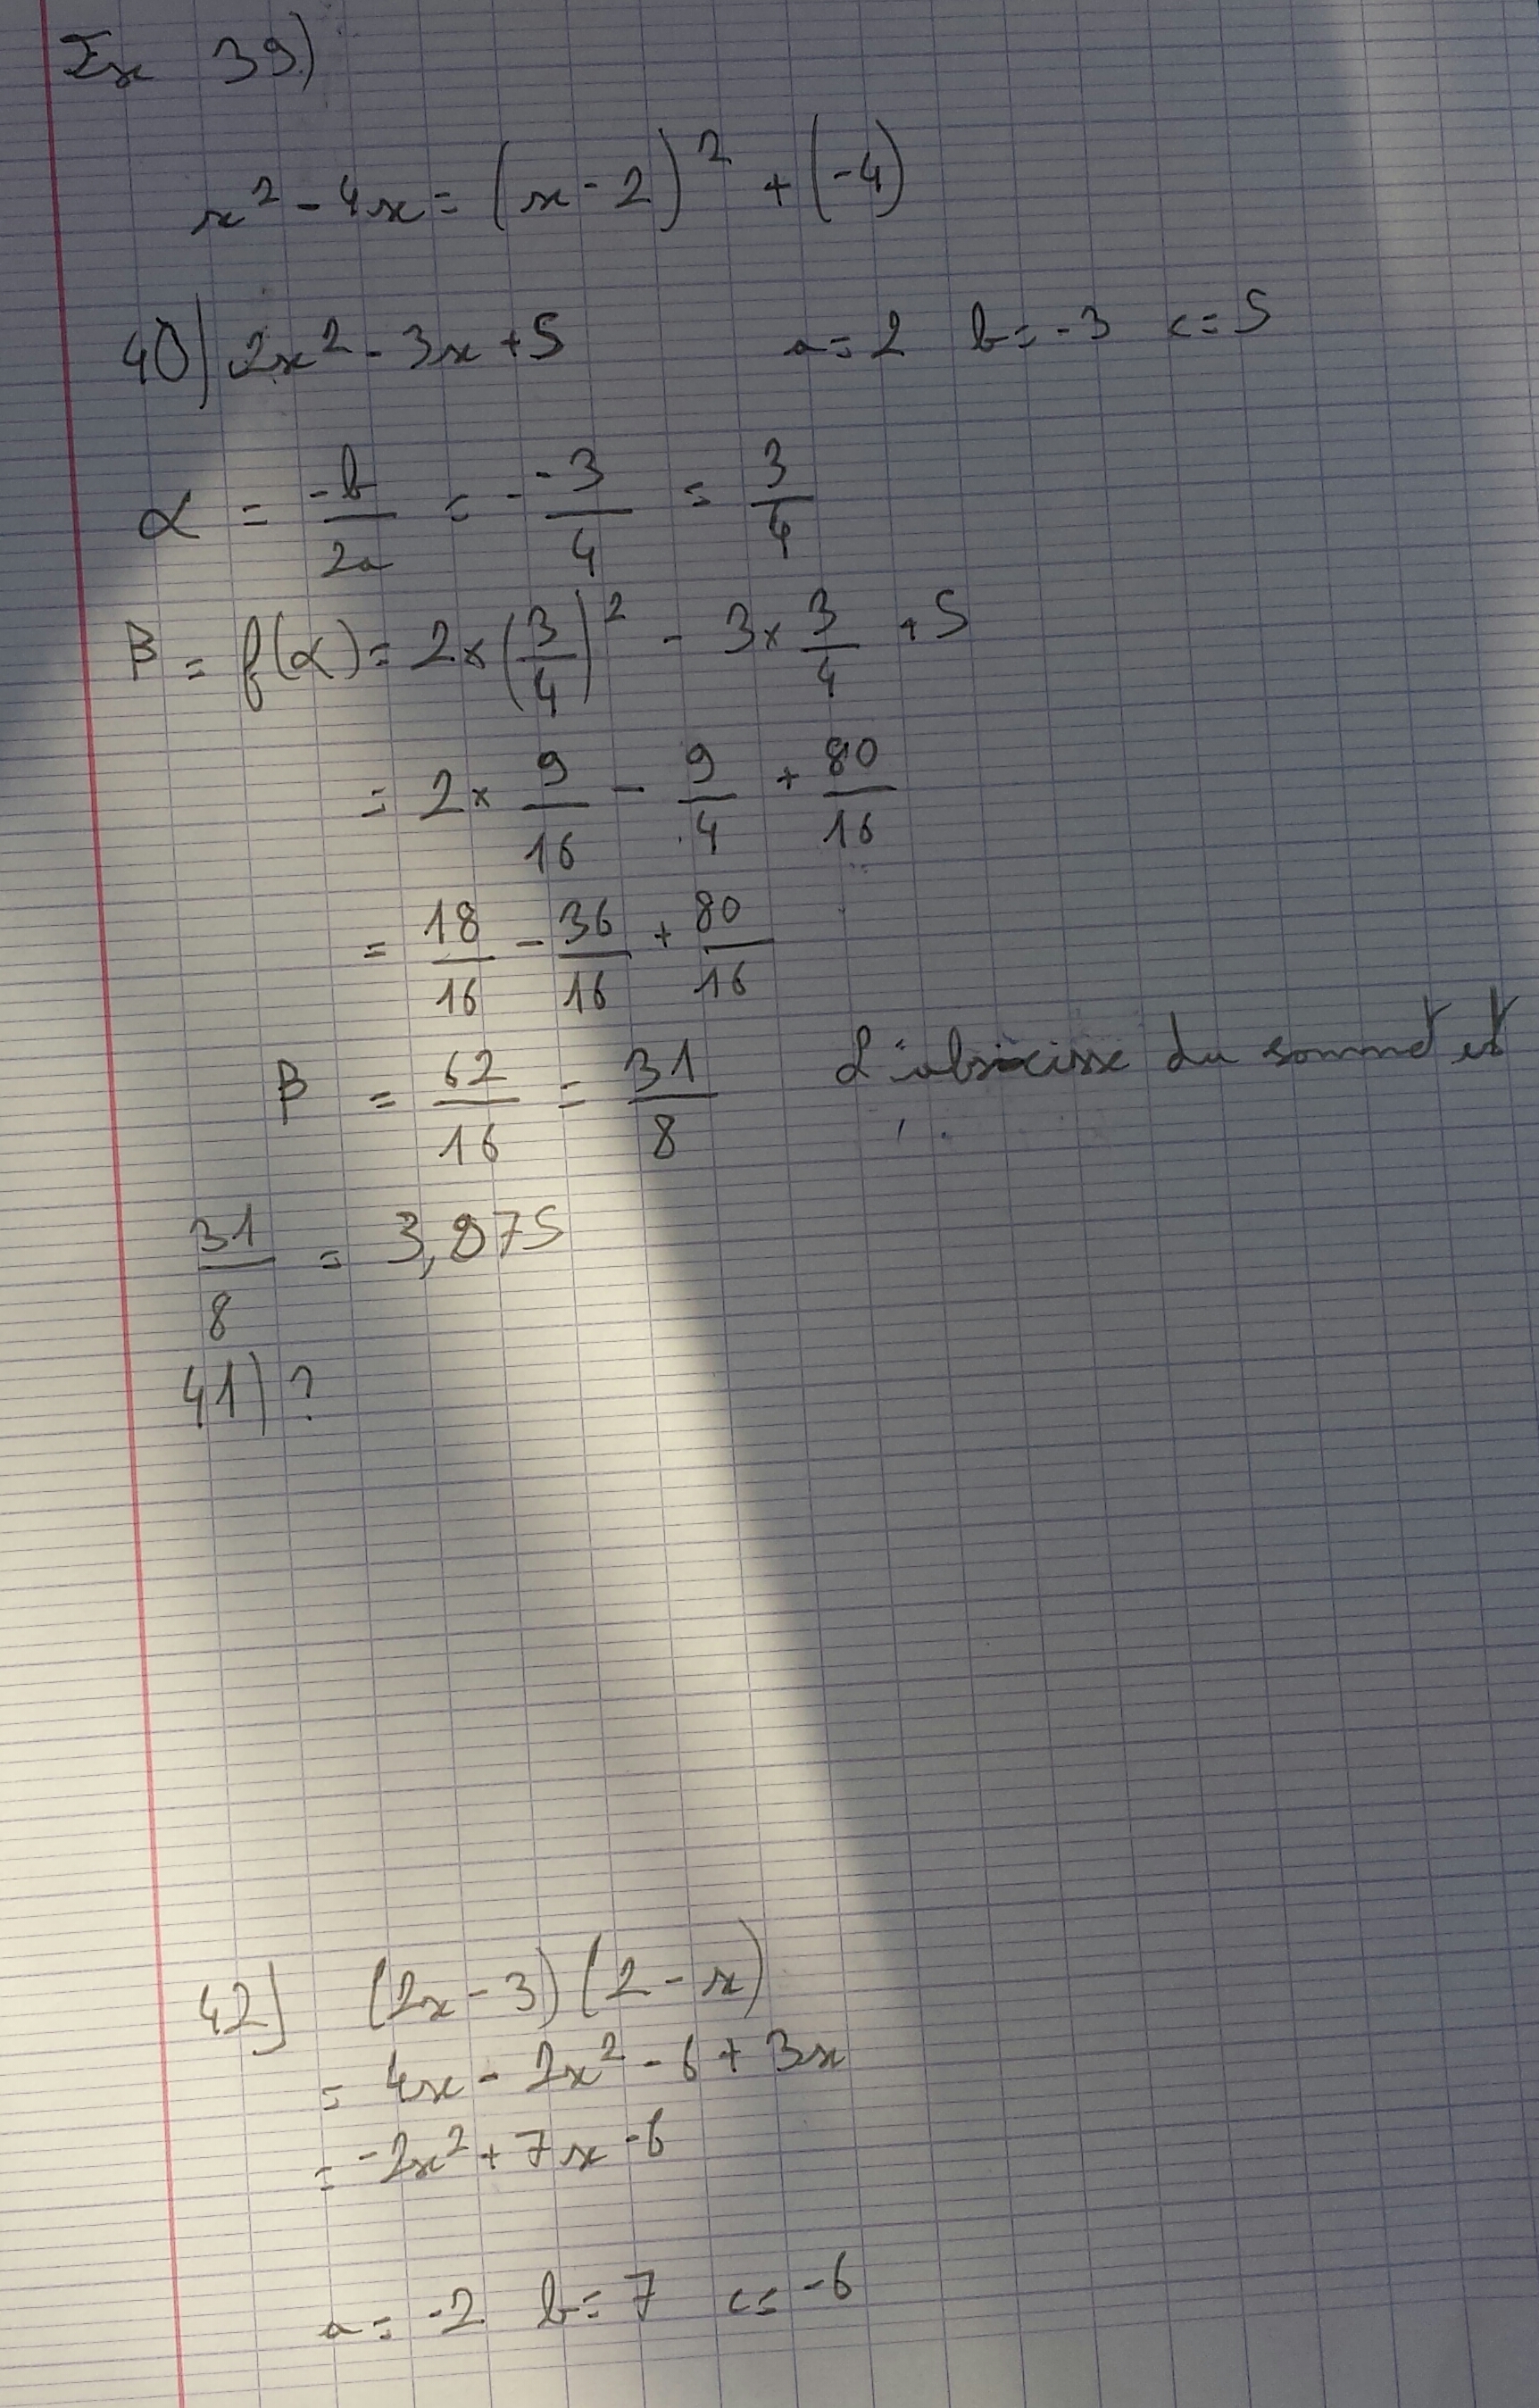 Ex 39)
x² - 4x = (x - 2)² + (-4)
40) 2x² - 3x + 5 a = 2 b = -3 c = 5
α = -b/2a = - -3/4 = 3/4
β = f(α) = 2 × (3/4)² - 3 × 3/4 + 5
= 2 × 9/16 - 9/4 + 80/16
= 18/16 - 36/16 + 80/16
β = 62/16 = 31/8 L'abscisse du sommet est
31/8 = 3,875
41) ?
42) (2x - 3)(2 - x)
= 4x - 2x² - 6 + 3x
= -2x² + 7x - 6
a = -2 b = 7 c = -6